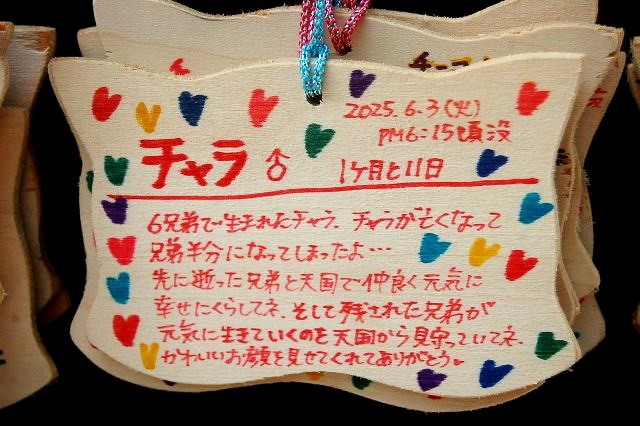 2025.6.3(火)
PM6:15頃没
チャラ ♂ 1ヶ月と11日
6兄弟で生まれたチャラ. チャラが亡くなって
兄弟半分になってしまったよ…
先に逝った兄弟と天国で仲良く元気に
幸せにくらしてネ. そして残された兄弟が
元気に生きていくのを天国から見守っていてネ.
かわいいお顔を見せてくれてありがとう。